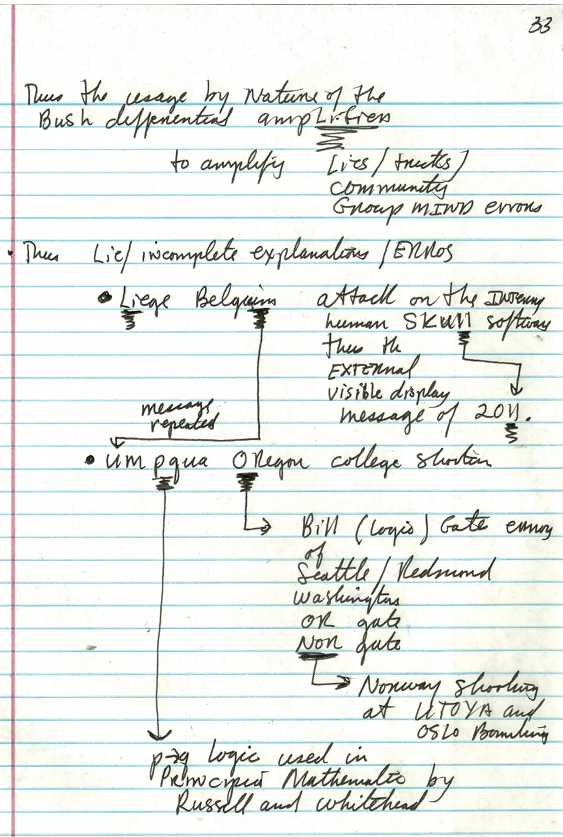 33
Thus the usage by Nature of the
Bush differential amplifiers
to amplify [Lies / trucks]
community
Group MIND errors
• Thus Lie/ incomplete explanations / ERRORS
• Liege Belgium attack on the INTERNAL
human SKUll software
thus th
EXTERNAL
visible display
message of 2011.
message
repeated
• UMpqua ORegon college shooting
Bill (logic) Gate errors
of
Seattle / Redmond
Washington
OR gate
NOR gate
Norway shooting
at UTOYA and
OSLO Bombing
p→q logic used in
Principia Mathematic by
Russell and Whitehead